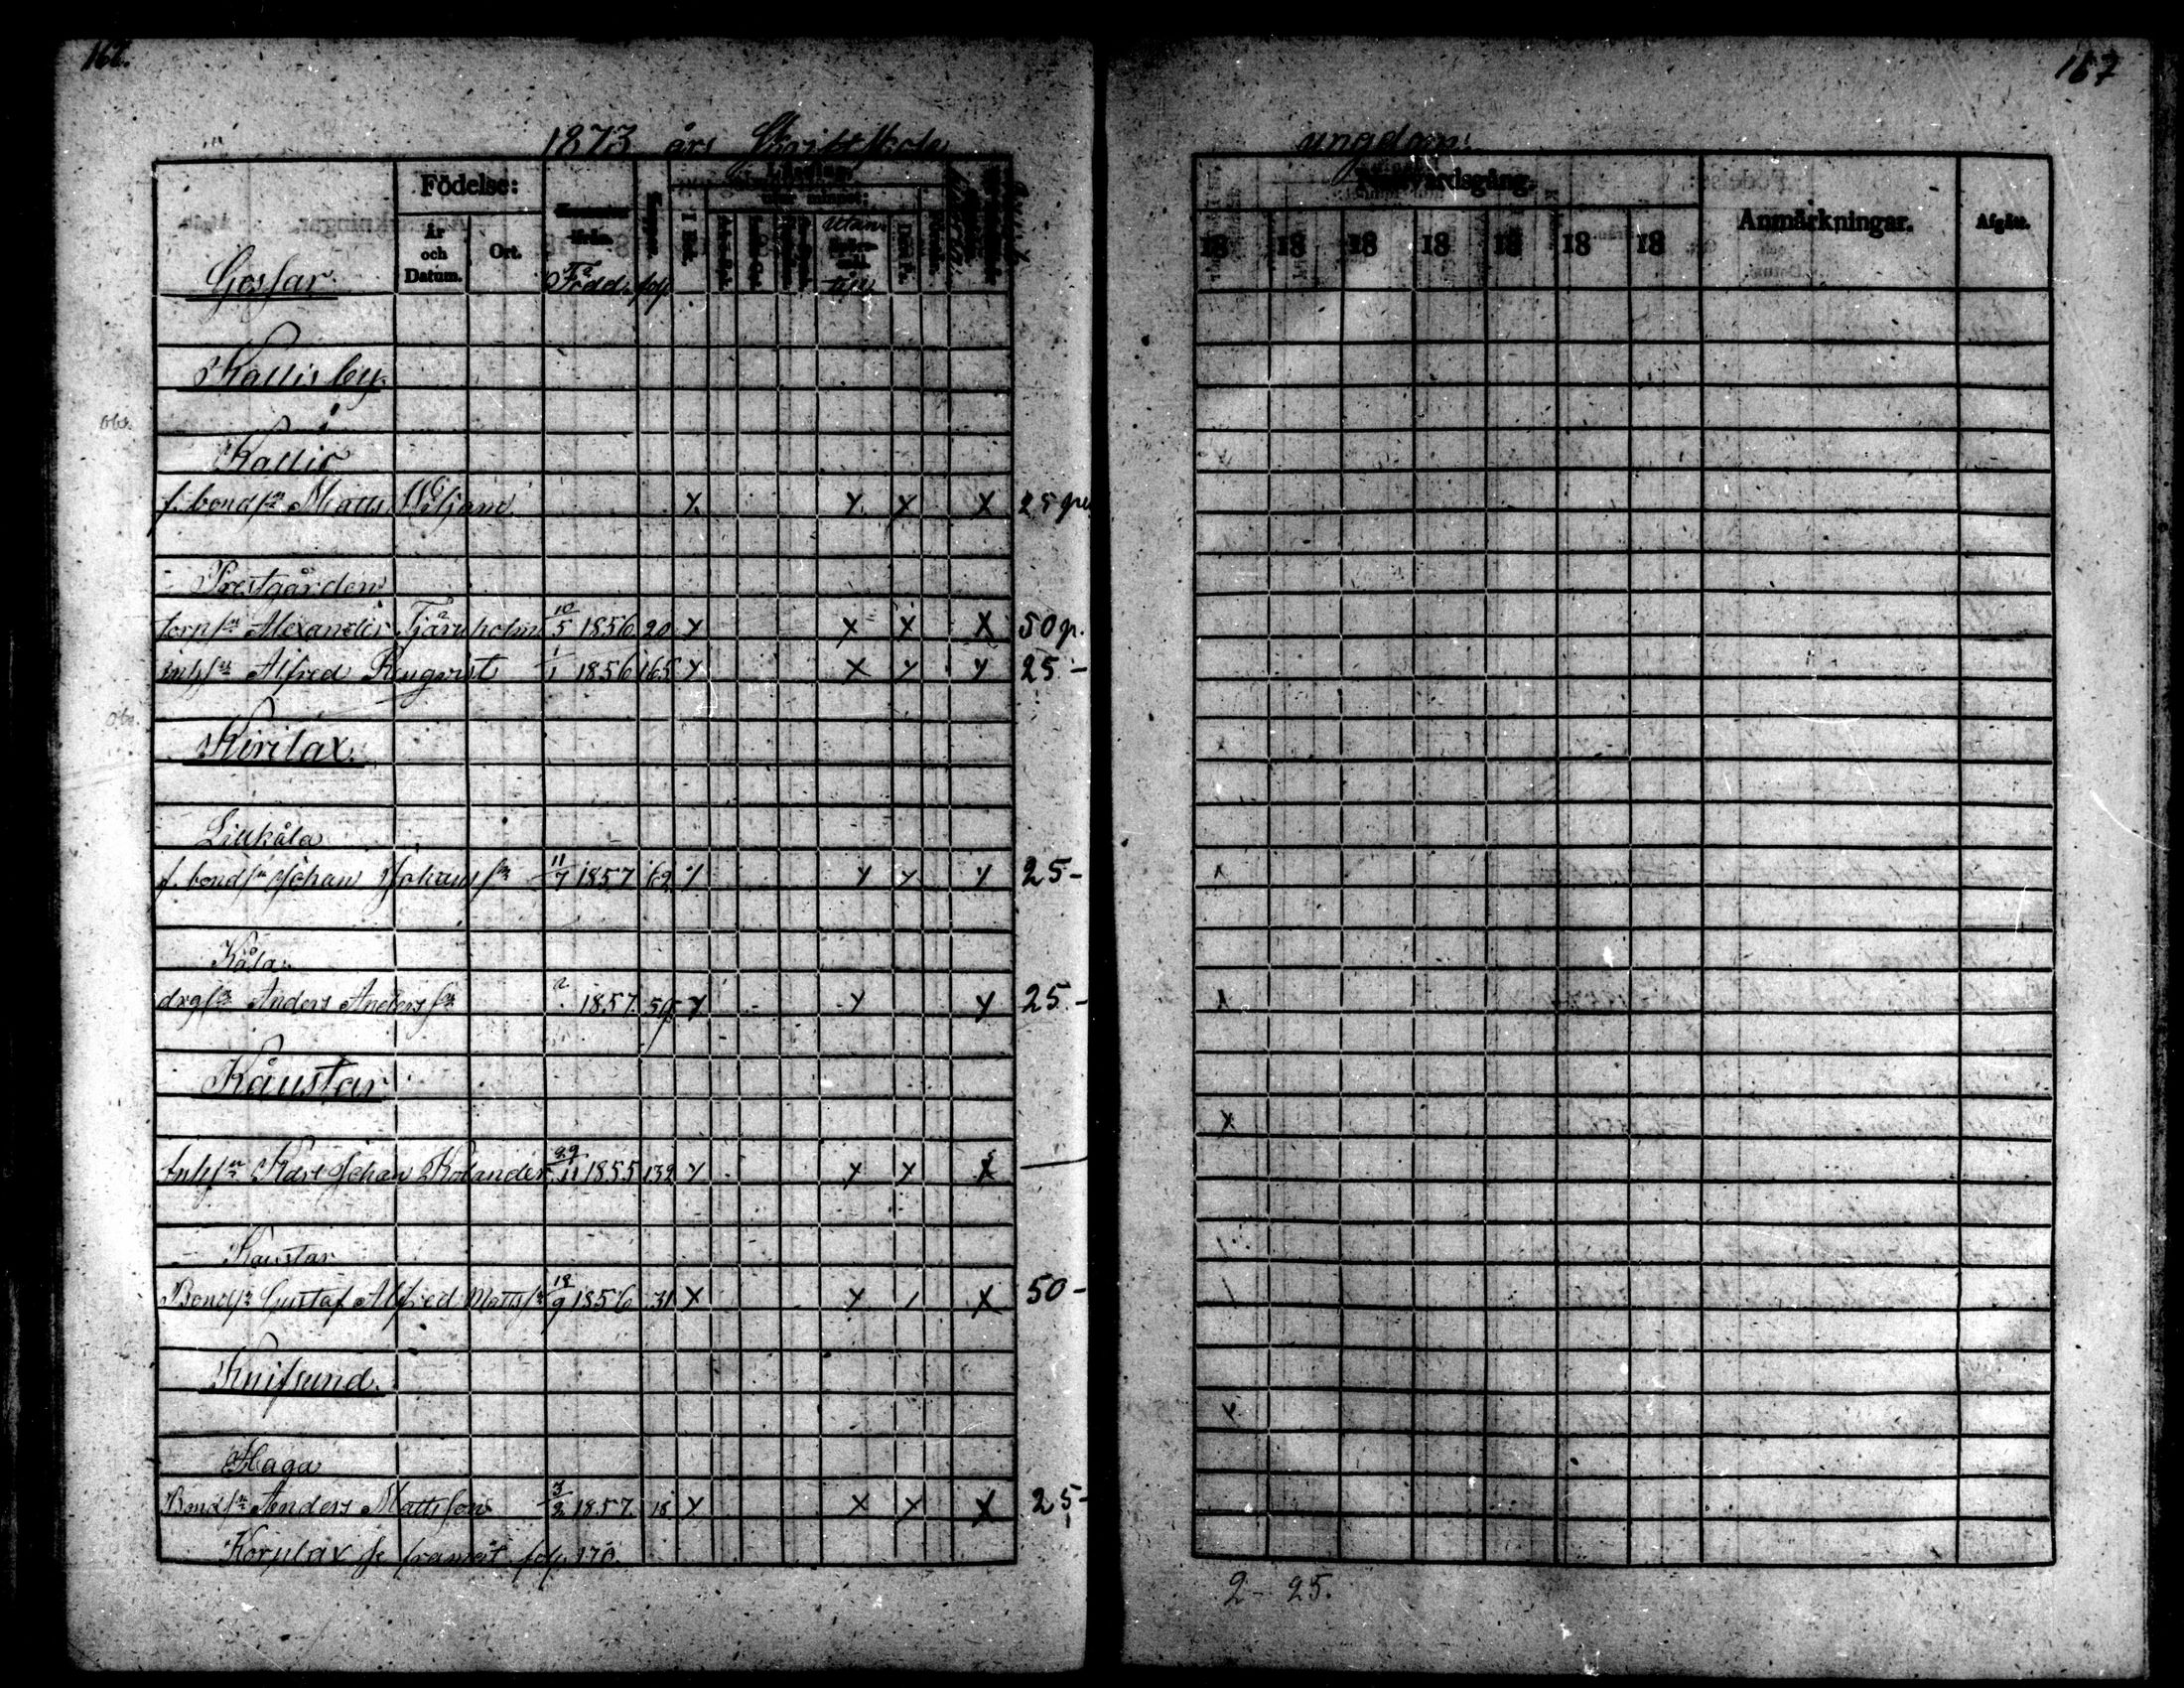 166.
1873 års Skriftskole
Födelse:
År och Datum.
Ort.
Född.
fol.
I Bok.
Utan
Gossar
Kallis by.
obs.
Kallis
f. bonds Matts Wiljam X X X X 25 p
Prestgården
torp Alexander Tjäruholm 10/5 1856 20 X X X X 50 p.
inhs Alfred Renqvist 1/1 1856 165 X X X X 25 -
obs.
Kirilax.
Lillkåla
f. bonds Johan Johans 11/7 1857 62 X X X X 25 -
Kåla
drgs Anders Anders 1857 59 X X X 25 -
Kåustar
Inhs Karl Johan Kolander 29/11 1855 132 X X X X —
Kaustar
Bonds Gustaf Alfred Matts 18/9 1856 31 X X X 50 -
Knifsund.
Haga
Bonds Anders Mattsson 3/2 1857 18 X X X X 25 -
Korplax se framåt fol. 170.
167
ungdom:
Nattvardsgång.
18 18 18 18 18 18 18
Anmärkningar.
Afgått.
2 - 25.